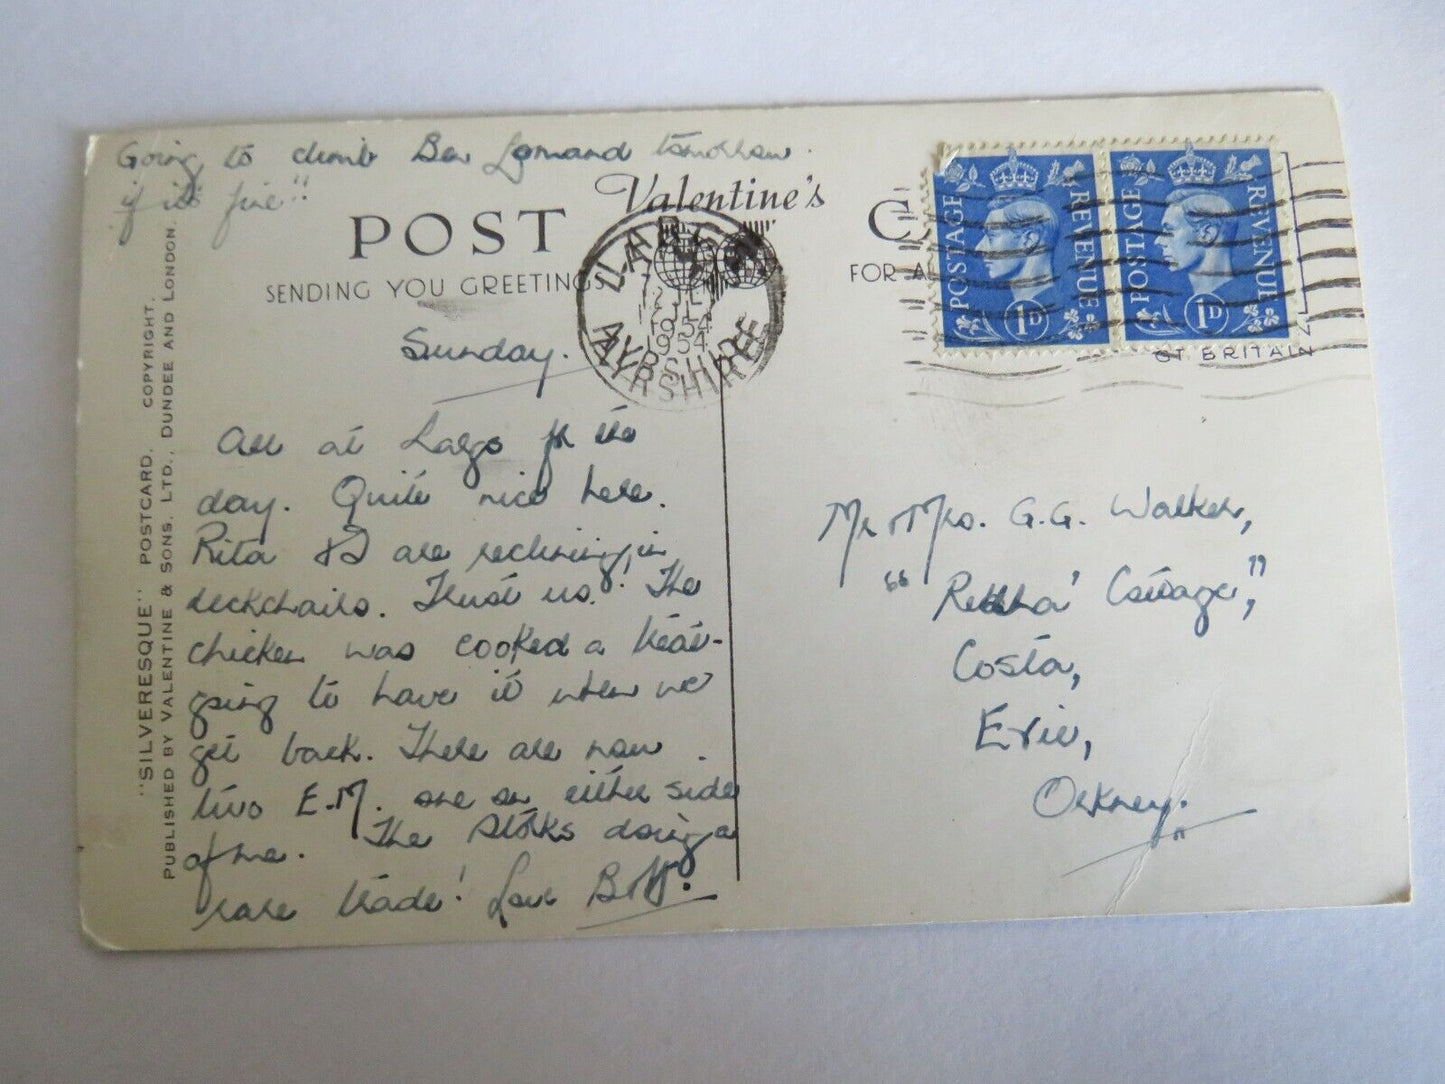 Going to climb Ben Lomond tomorrow.
if its fine!!
Valentine's
POST C
SENDING YOU GREETINGS FOR AL
LARGS
AYRSHIRE
1954
1954
POSTAGE REVENUE 1D
POSTAGE REVENUE 1D
GT BRITAIN
"SILVERESQUE" POSTCARD. COPYRIGHT.
PUBLISHED BY VALENTINE & SONS, LTD., DUNDEE AND LONDON.
Sunday.
All at Largs for the
day. Quite nice here.
Rita & I are reclining in
deckchairs. Trust us! The
chicken was cooked a treat -
going to have it when we
get back. There are now
two E.M. one on either side
of me. The Storks doing a
rare trade! Love
Mr & Mrs. G.G. Walker,
" Cottage",
Costa,
Evie,
Orkney.